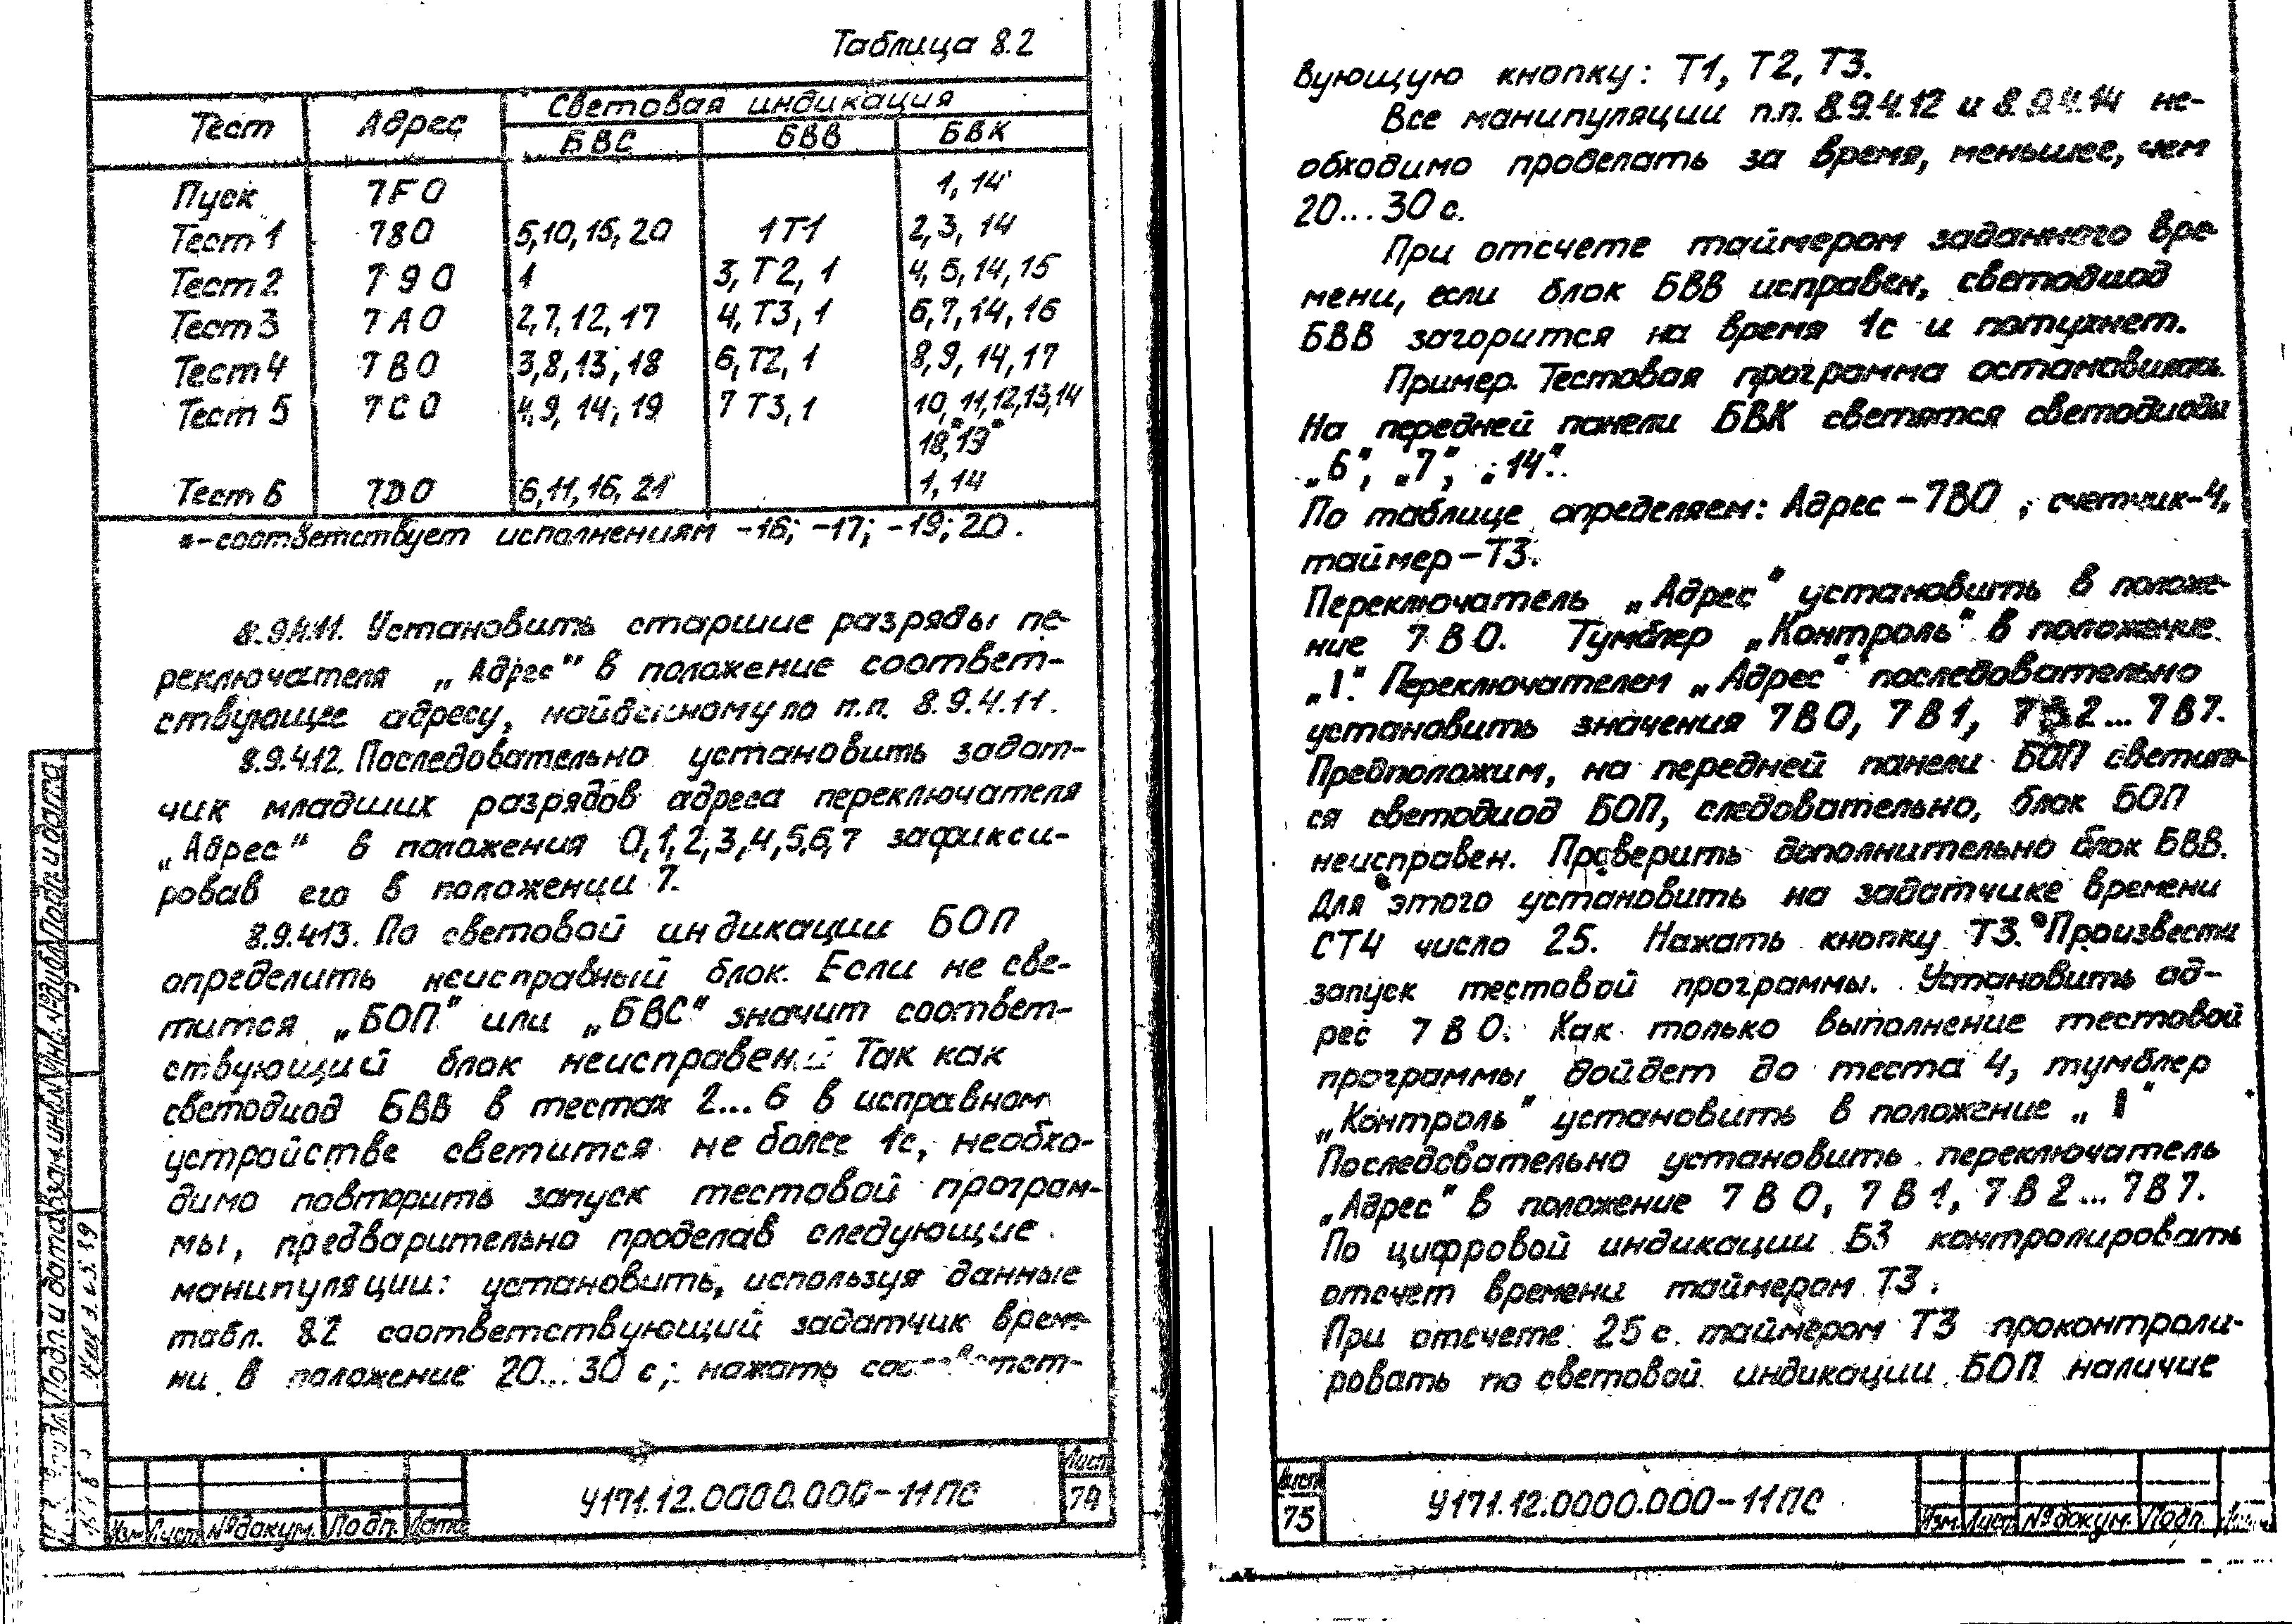 Таблица 8.2
Тест Адрес Световая индикация
БВС БВВ БВК
Пуск 7F0 1, 14
Тест 1 780 5,10,15,20 1Т1 2,3, 14
Тест 2 790 1 3, Т2, 1 4, 5, 14, 15
Тест 3 7А0 2,7,12,17 4, Т3, 1 6,7,14,16
Тест 4 7В0 3,8,13,18 6, Т2, 1 8,9, 14, 17
Тест 5 7С0 4,9, 14, 19 7 Т3, 1 10, 11,12,13,14
18,*19*
Тест 6 7D0 6,11,16, 21 1, 14
*-соответствует исполнениям -16; -17; -19; 20.
8.9.4.11. Установить старшие разряды пе-
реключателя „Адрес" в положение соответ-
ствующее адресу, найденному по п.п. 8.9.4.11.
8.9.4.12. Последовательно установить задат-
чик младших разрядов адреса переключателя
„Адрес" в положения 0,1,2,3,4,5,6,7 зафикси-
ровав его в положении 7.
8.9.4.13. По световой индикации БОП
определить неисправный блок. Если не све-
тится „БОП" или „БВС" значит соответ-
ствующий блок неисправен. Так как
светодиод БВВ в тестах 2...6 в исправном
устройстве светится не более 1с, необхо-
димо повторить запуск тестовой програм-
мы, предварительно проделав следующие
манипуляции: установить, используя данные
табл. 8.2 соответствующий задатчик време-
ни в положение 20...30 с; нажать соответст-
У171.12.0000.000-11ПС
Лист
74
Изм Лист №докум. Подп. Дата
Подп. и дата
Инв.№дубл
Взам.инв.№
Подп. и дата
вующую кнопку: Т1, Т2, Т3.
Все манипуляции п.п. 8.9.4.12 и 8.9.4.14 не-
обходимо проделать за время, меньшее, чем
20...30 с.
При отсчете таймером заданного вре-
мени, если блок БВВ исправен, светодиод
БВВ загорится на время 1с и потухнет.
Пример. Тестовая программа остановилась.
На передней панели БВК светятся светодиоды
„6", „7", „14".
По таблице определяем: Адрес - 7В0 ; счетчик-4,
таймер-Т3.
Переключатель „Адрес" установить в положе-
ние 7 В 0. Тумблер „Контроль" в положение
„1". Переключателем „Адрес" последовательно
установить значения 7В0, 7В1, 7В2... 7В7.
Предположим, на передней панели БОП светит-
ся светодиод БОП, следовательно, блок БОП
неисправен. Проверить дополнительно блок БВВ.
Для этого установить на задатчике времени
СТ4 число 25. Нажать кнопку Т3. Произвести
запуск тестовой программы. Установить ад-
рес 7 В 0. Как только выполнение тестовой
программы дойдет до теста 4, тумблер
„Контроль" установить в положение „1"
Последовательно установить переключатель
„Адрес" в положение 7 В 0, 7 В 1, 7 В 2... 7В7.
По цифровой индикации БЗ контролировать
отсчет времени таймером Т3.
При отсчете 25 с таймером Т3 проконтроли-
ровать по световой индикации БОП наличие
Лист
75
У171.12.0000.000-11ПС
Изм. Лист №докум. Подп.